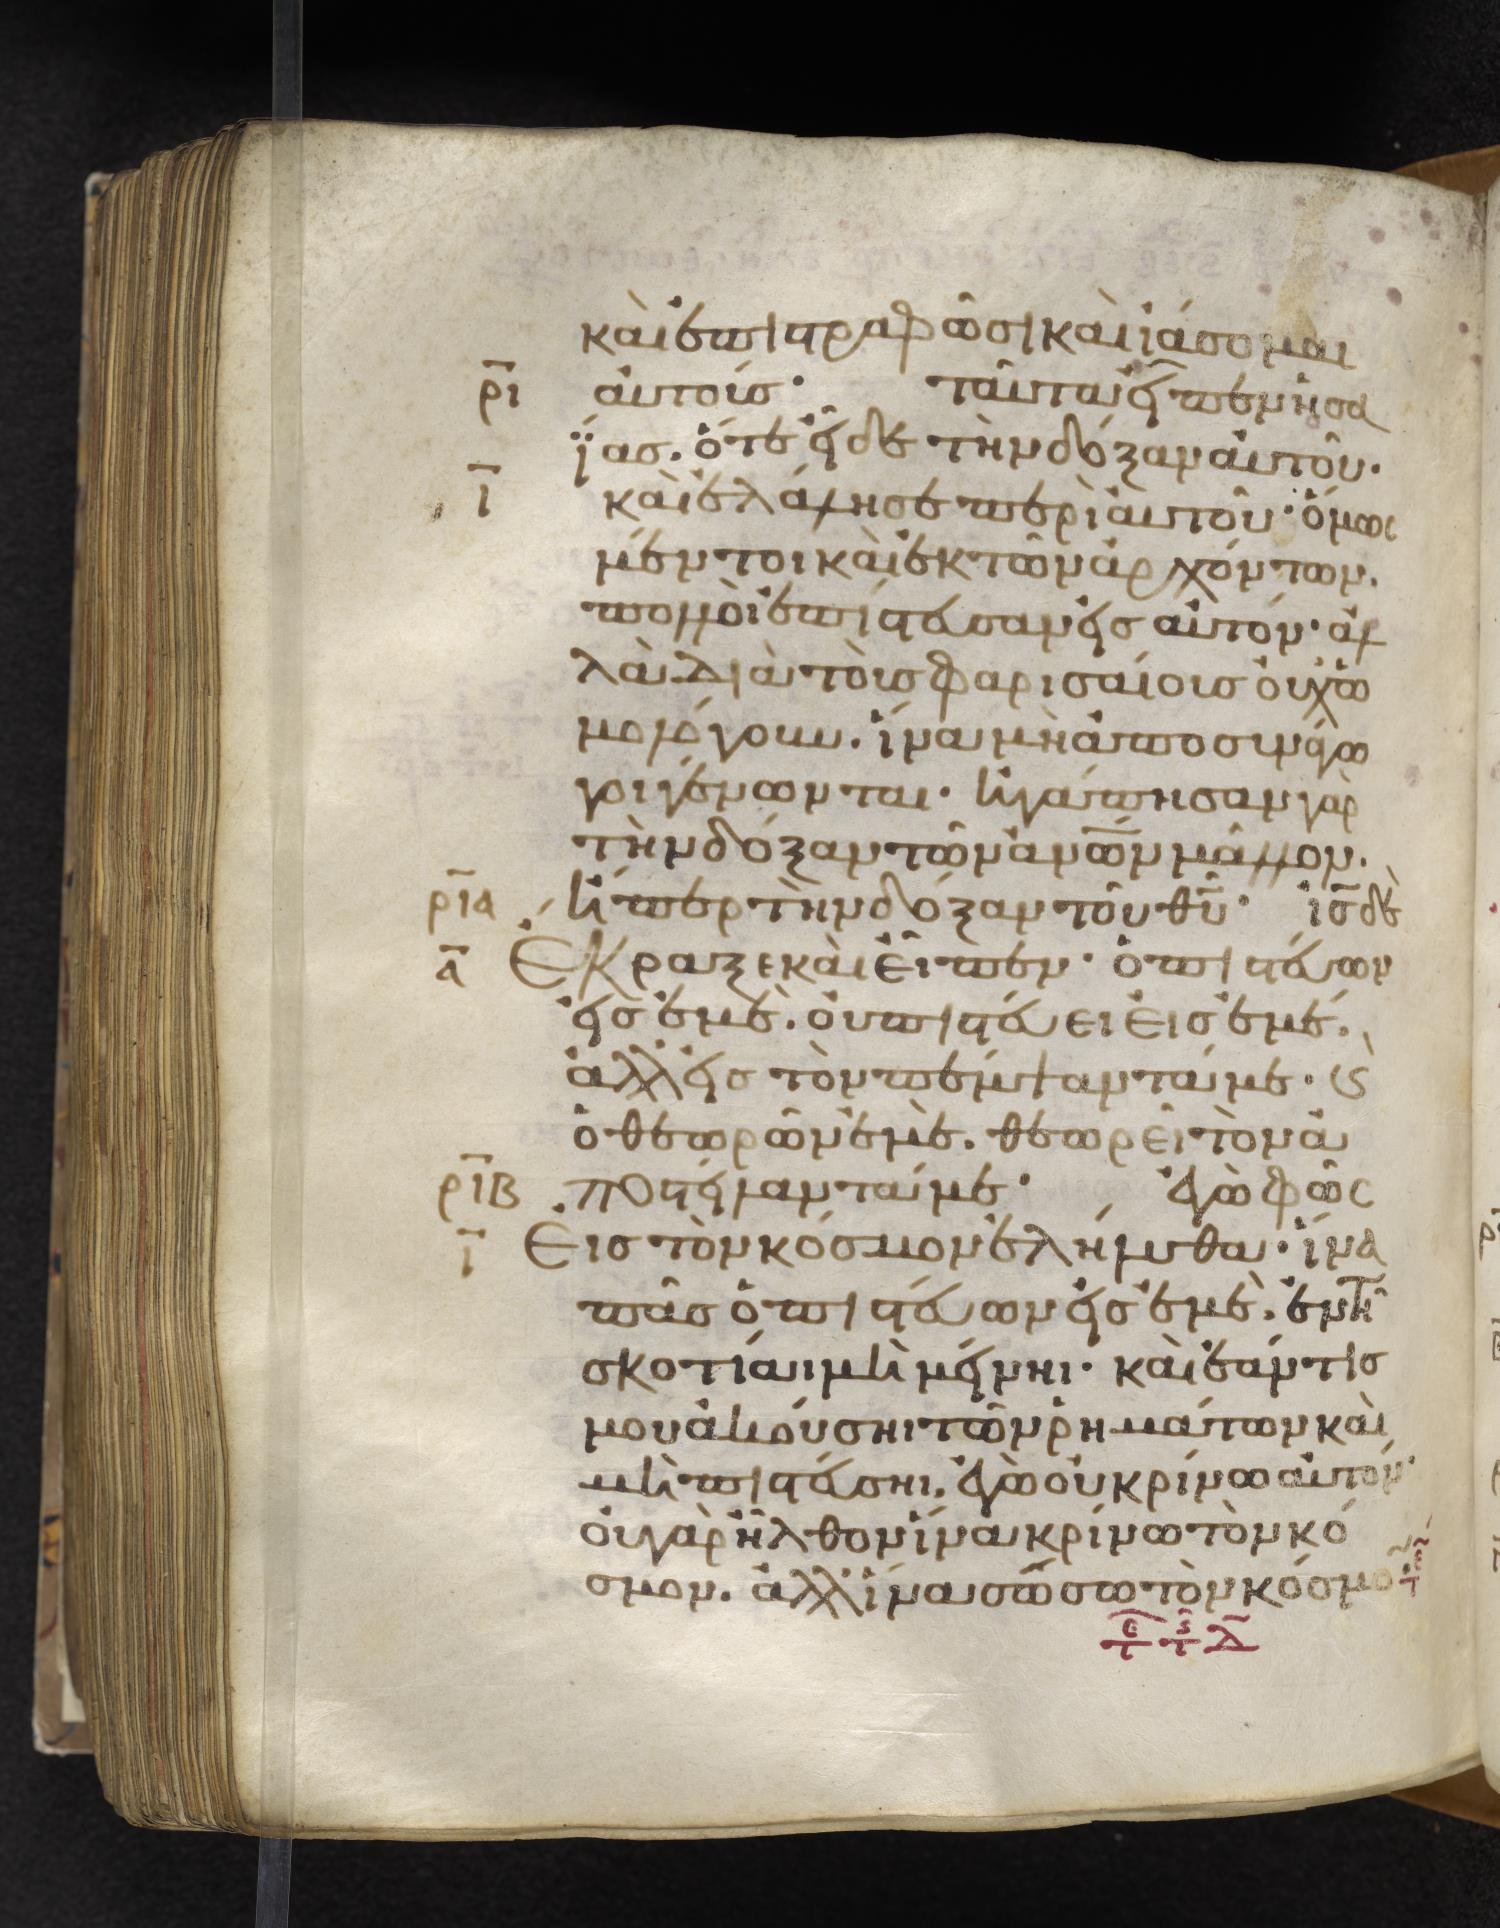 καὶ ἐπιστραφῶσι καὶ ἰάσομαι
ρι αὐτούς· ταῦτα εἶπεν ἡσα
ΐας. ὅτε εἶδε τὴν δόξαν αὐτοῦ·
ι καὶ ἐλάλησε περὶ αὐτοῦ· ὅμως
μέντοι καὶ ἐκ τῶν ἀρχόντων.
πολλοὶ ἐπίστευσαν εἰς αὐτόν· ἀλ
λὰ διὰ τοὺς φαρισαίους οὐχ ὡ
μολόγουν. ἵνα μὴ ἀποσυνάγω
γοι γένωνται· ἠγάπησαν γὰρ
τὴν δόξαν τῶν ἀνων μᾶλλον.
ρια ἤπερ τὴν δόξαν τοῦ θυ· ις δὲ
α Ἔκραξε καὶ εἶπεν· ὁ πιστεύων
εἰς ἐμέ. οὐ πιστεύει εἰς ἐμέ.
ἀλλ' εἰς τὸν πέμψαντά με· ϛ
ὁ θεωρῶν ἐμὲ. θεωρεῖ τὸν ἀ
ριβ ποστείλαντά με· ἐγὼ φῶς
ι Εἰς τὸν κόσμον ἐλήλυθα· ἵνα
πᾶς ὁ πιστεύων εἰς ἐμὲ. ἐν τῆ
σκοτίαι μὴ μείνηι· καὶ ἐάν τις
μου ἀκούσηι τῶν ῥημάτων καὶ
μὴ πιστεύσηι. ἐγὼ οὐ κρίνω αὐτόν·
οὐ γὰρ ἦλθον ἵνα κρίνω τὸν κό
σμον. ἀλλ' ἵνα σώσω τὸν κόσμο